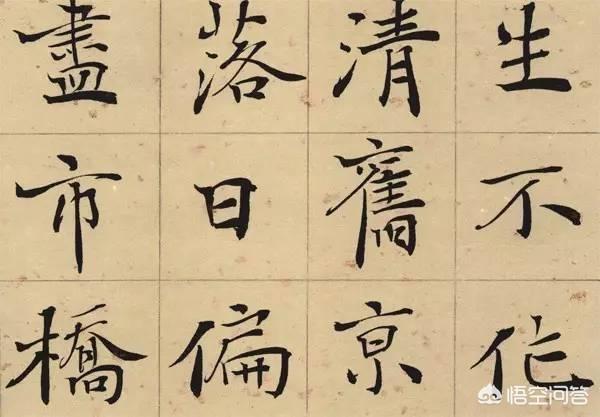 生不作
清舊京
落日偏
盡市橋
悟空问答